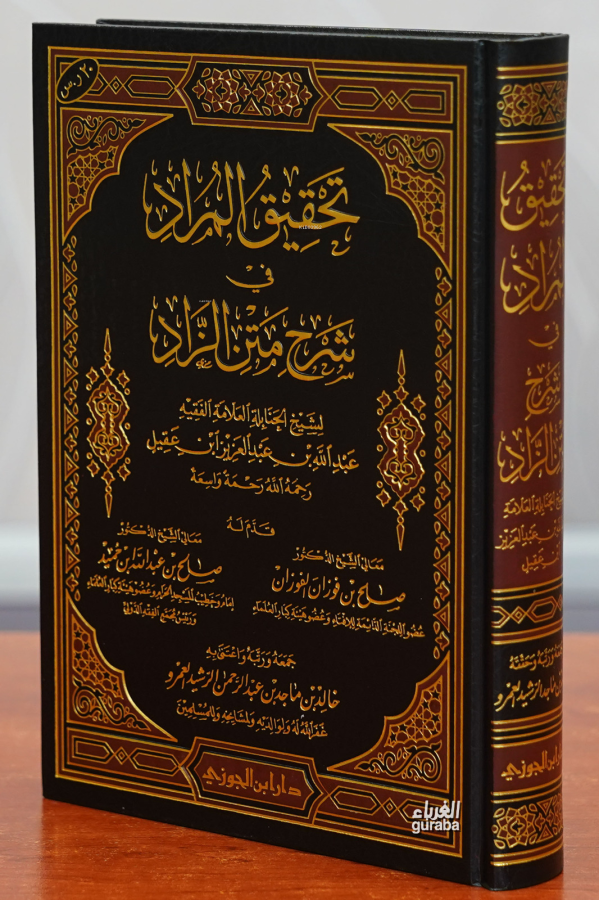 ٢٠ ر.س
تحقيق المراد
في
شرح متن الزاد
لشيخ الحنابلة العلامة الفقيه
عبد الله بن عبد العزيز ابن عقيل
رحمه الله رحمة واسعة
قدم له
معالي الشيخ الدكتور
صالح بن فوزان الفوزان
عضو اللجنة الدائمة للإفتاء وعضو هيئة كبار العلماء
معالي الشيخ الدكتور
صالح بن عبد الله ابن حميد
إمام وخطيب المسجد الحرام وعضو هيئة كبار العلماء
ورئيس مجمع الفقه الدولي
جمعه ورتبه واعتنى به
خالد بن ماجد بن عبد الرحمن الرشيد العمرو
غفر الله له ولوالديه ولمشايخه وللمسلمين
دار ابن الجوزي
تحقيق
المراد
في
شرح
متن الزاد
لشيخ الحنابلة العلامة
عبد الله بن عبد العزيز
ابن عقيل
جمعه ورتبه وحققه
بن ماجد الرشيد العمرو
دار ابن الجوزي
الغرباء
guraba